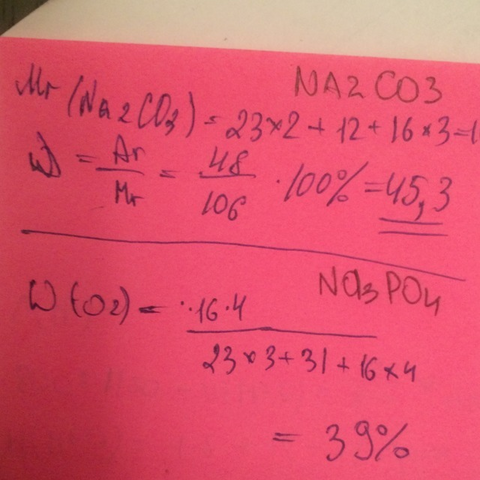 NA2CO3
Mr (Na2CO3) = 23×2 + 12 + 16×3 = 1
W = Ar / Mr = 48 / 106 · 100% = 45,3
Na3PO4
W (O2) = 16·4 / 23×3+31+16×4
= 39%